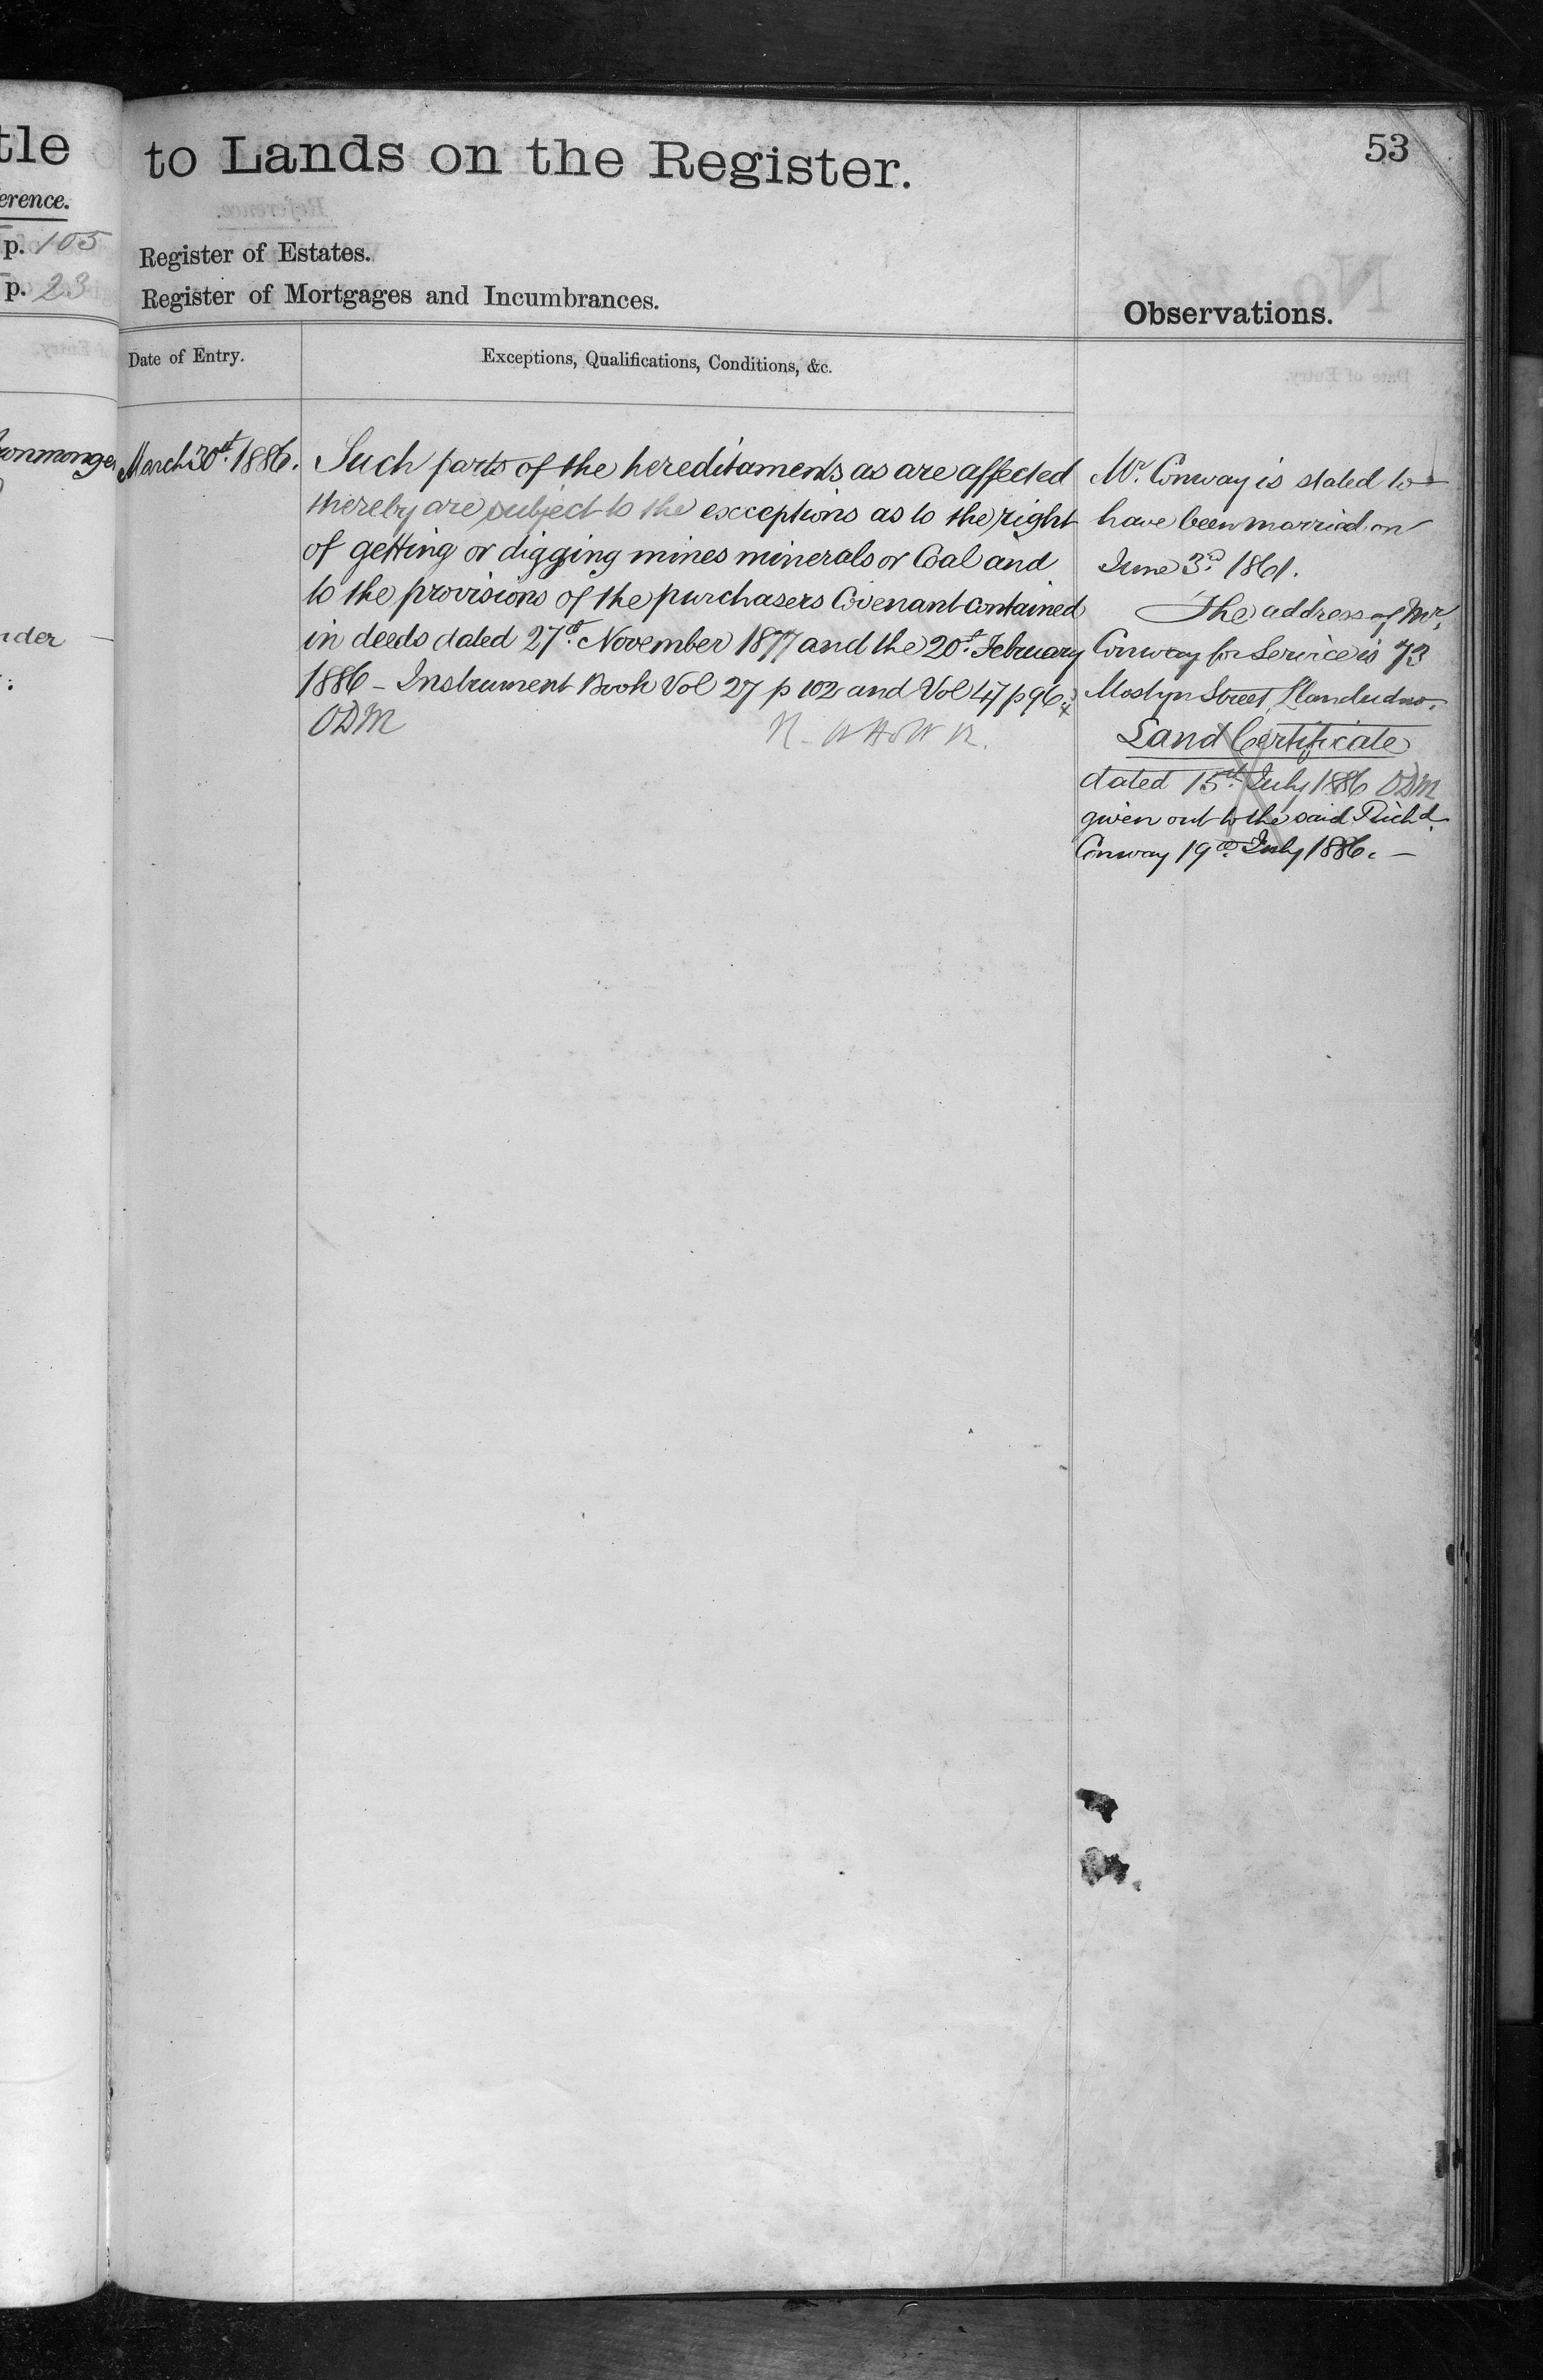 tle
erence.
p. 105
p. 23
onmonger
nder —
to Lands on the Register.
53
Register of Estates.
Register of Mortgages and Incumbrances.
Observations.
Date of Entry.
Exceptions, Qualifications, Conditions, &c.
March 30th. 1886.
Such parts of the hereditaments as are affected
thereby are subject to the exceptions as to the right
of getting or digging mines minerals or Coal and
to the provisions of the purchasers Covenant contained
in deeds dated 27th. November 1877 and the 20th. February
1886 – Instrument Book Vol 27 p 102 and Vol 47 p 96.
ODM
Mr. Conway is stated to
have been married on
June 3rd. 1861.
The address of Mr.
Conway for Service is 73
Mostyn Street, Llandudno.
Land Certificate
dated 15th. July 1886 ODM
given out to the said Richd.
Conway 19th. July 1886. —